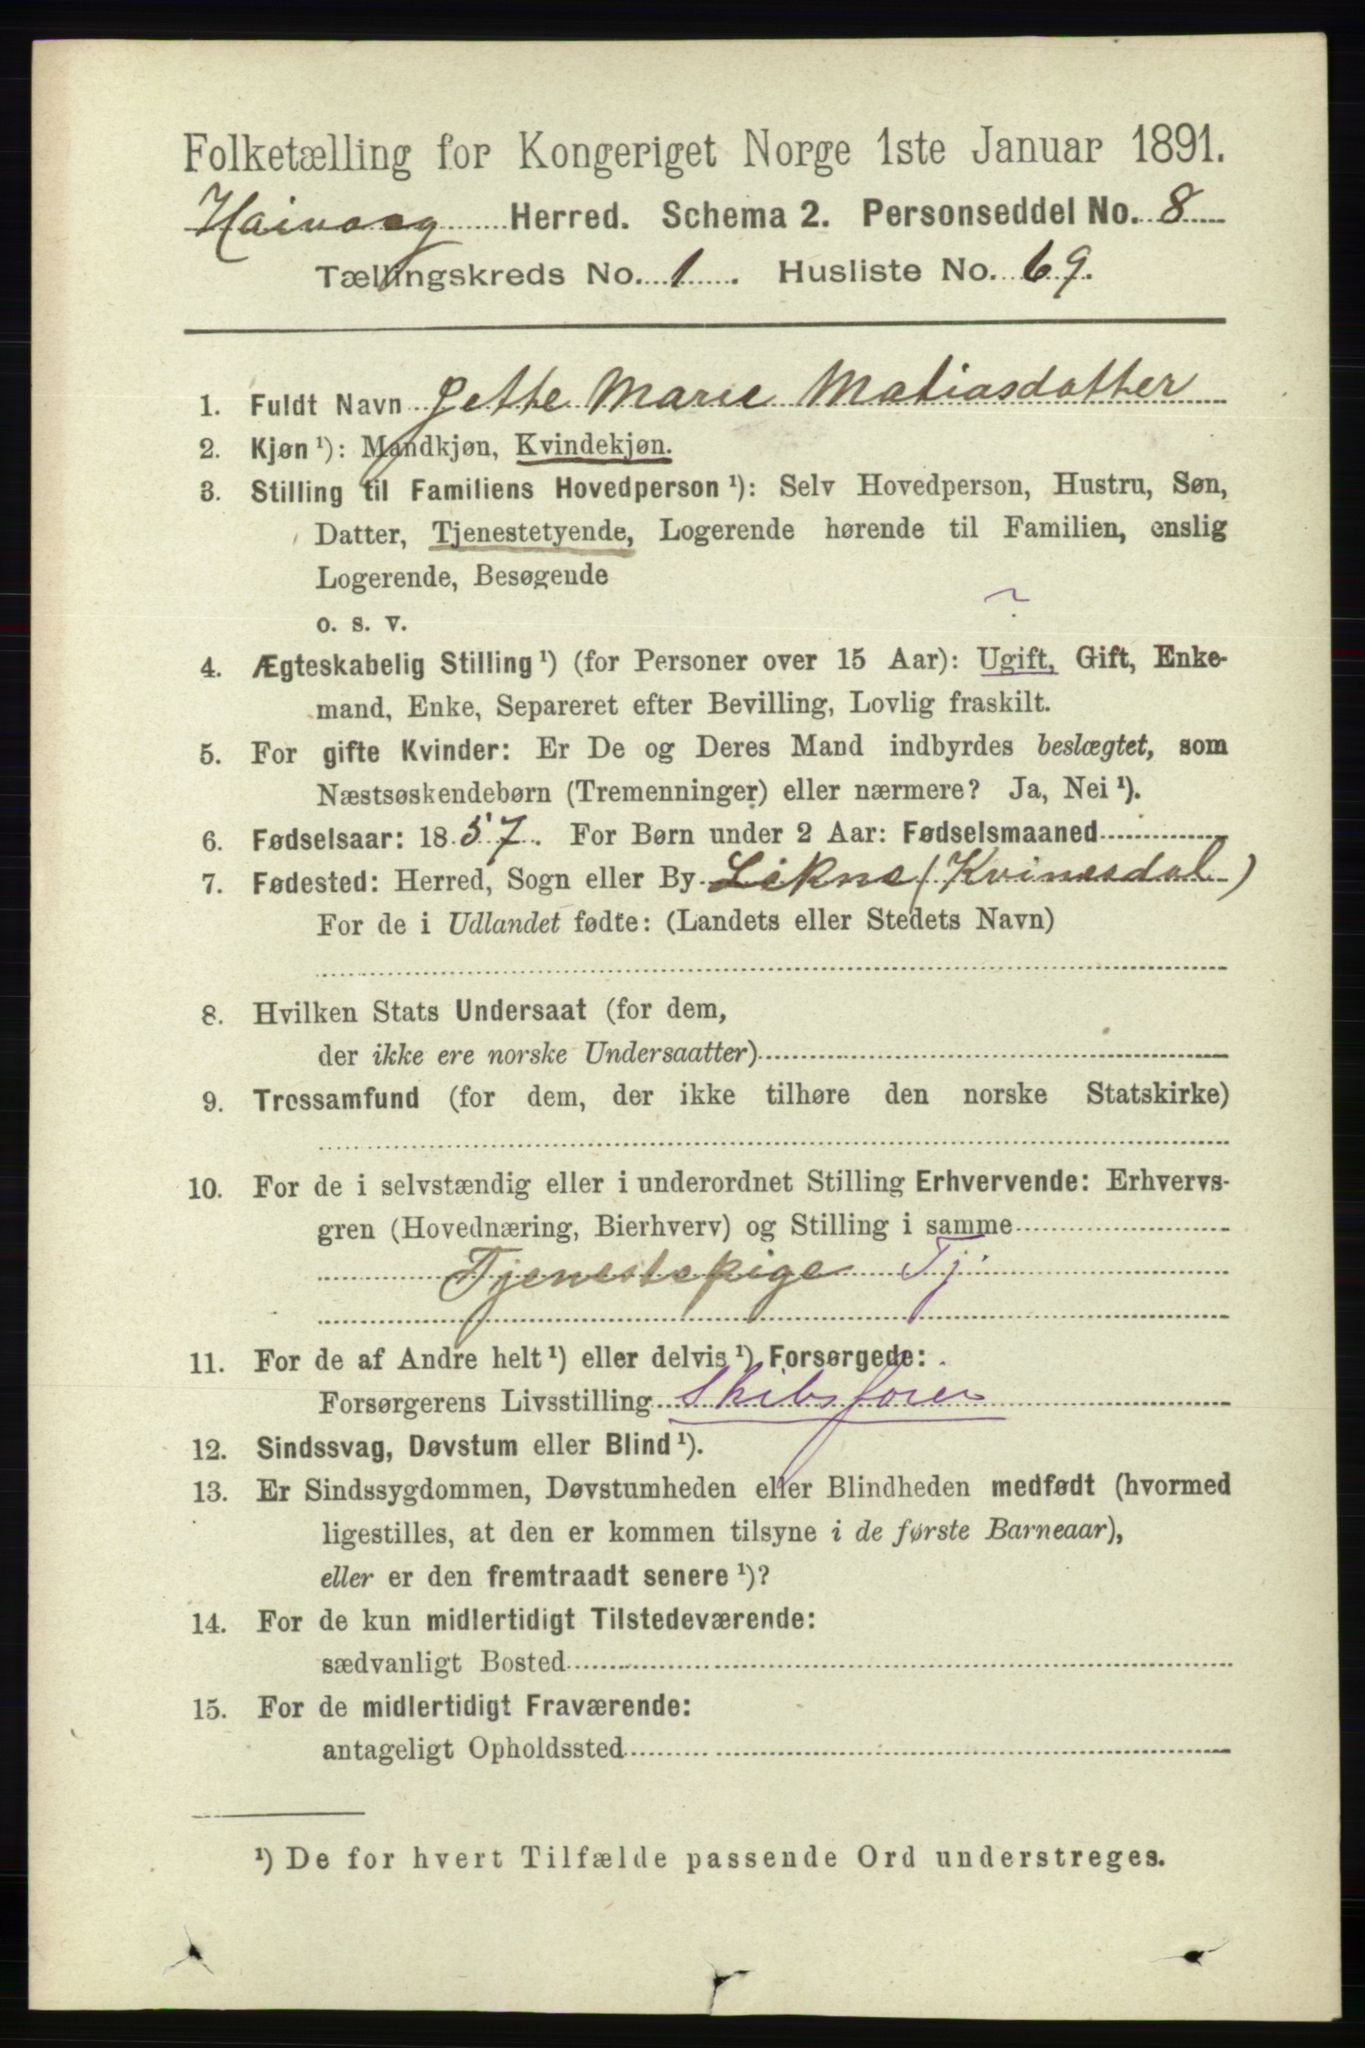 Folketælling for Kongeriget Norge 1ste Januar 1891.
Haivaag Herred. Schema 2. Personseddel No. 8
Tællingskreds No. 1. Husliste No. 69.
1. Fuldt Navn Jette Marie Matiasdatter
2. Kjøn ¹): Mandkjøn, Kvindekjøn.
3. Stilling til Familiens Hovedperson ¹): Selv Hovedperson, Hustru, Søn,
Datter, Tjenestetyende, Logerende hørende til Familien, enslig
Logerende, Besøgende
o. s. v.
?
4. Ægteskabelig Stilling ¹) (for Personer over 15 Aar): Ugift, Gift, Enke-
mand, Enke, Separeret efter Bevilling, Lovlig fraskilt.
5. For gifte Kvinder: Er De og Deres Mand indbyrdes beslægtet, som
Næstsøskendebørn (Tremenninger) eller nærmere? Ja, Nei ¹).
6. Fødselsaar: 1857. For Børn under 2 Aar: Fødselsmaaned
7. Fødested: Herred, Sogn eller By Likne (Kvinesdal)
For de i Udlandet fødte: (Landets eller Stedets Navn)
8. Hvilken Stats Undersaat (for dem,
der ikke ere norske Undersaatter)
9. Trossamfund (for dem, der ikke tilhøre den norske Statskirke)
10. For de i selvstændig eller i underordnet Stilling Erhvervende: Erhvervs-
gren (Hovednæring, Bierhverv) og Stilling i samme
Tjenestepige Tj.
11. For de af Andre helt ¹) eller delvis ¹) Forsørgede:
Forsørgerens Livsstilling Skibsfører
12. Sindssvag, Døvstum eller Blind ¹).
13. Er Sindssygdommen, Døvstumheden eller Blindheden medfødt (hvormed
ligestilles, at den er kommen tilsyne i de første Barneaar),
eller er den fremtraadt senere ¹)?
14. For de kun midlertidigt Tilstedeværende:
sædvanligt Bosted
15. For de midlertidigt Fraværende:
antageligt Opholdssted
¹) De for hvert Tilfælde passende Ord understreges.